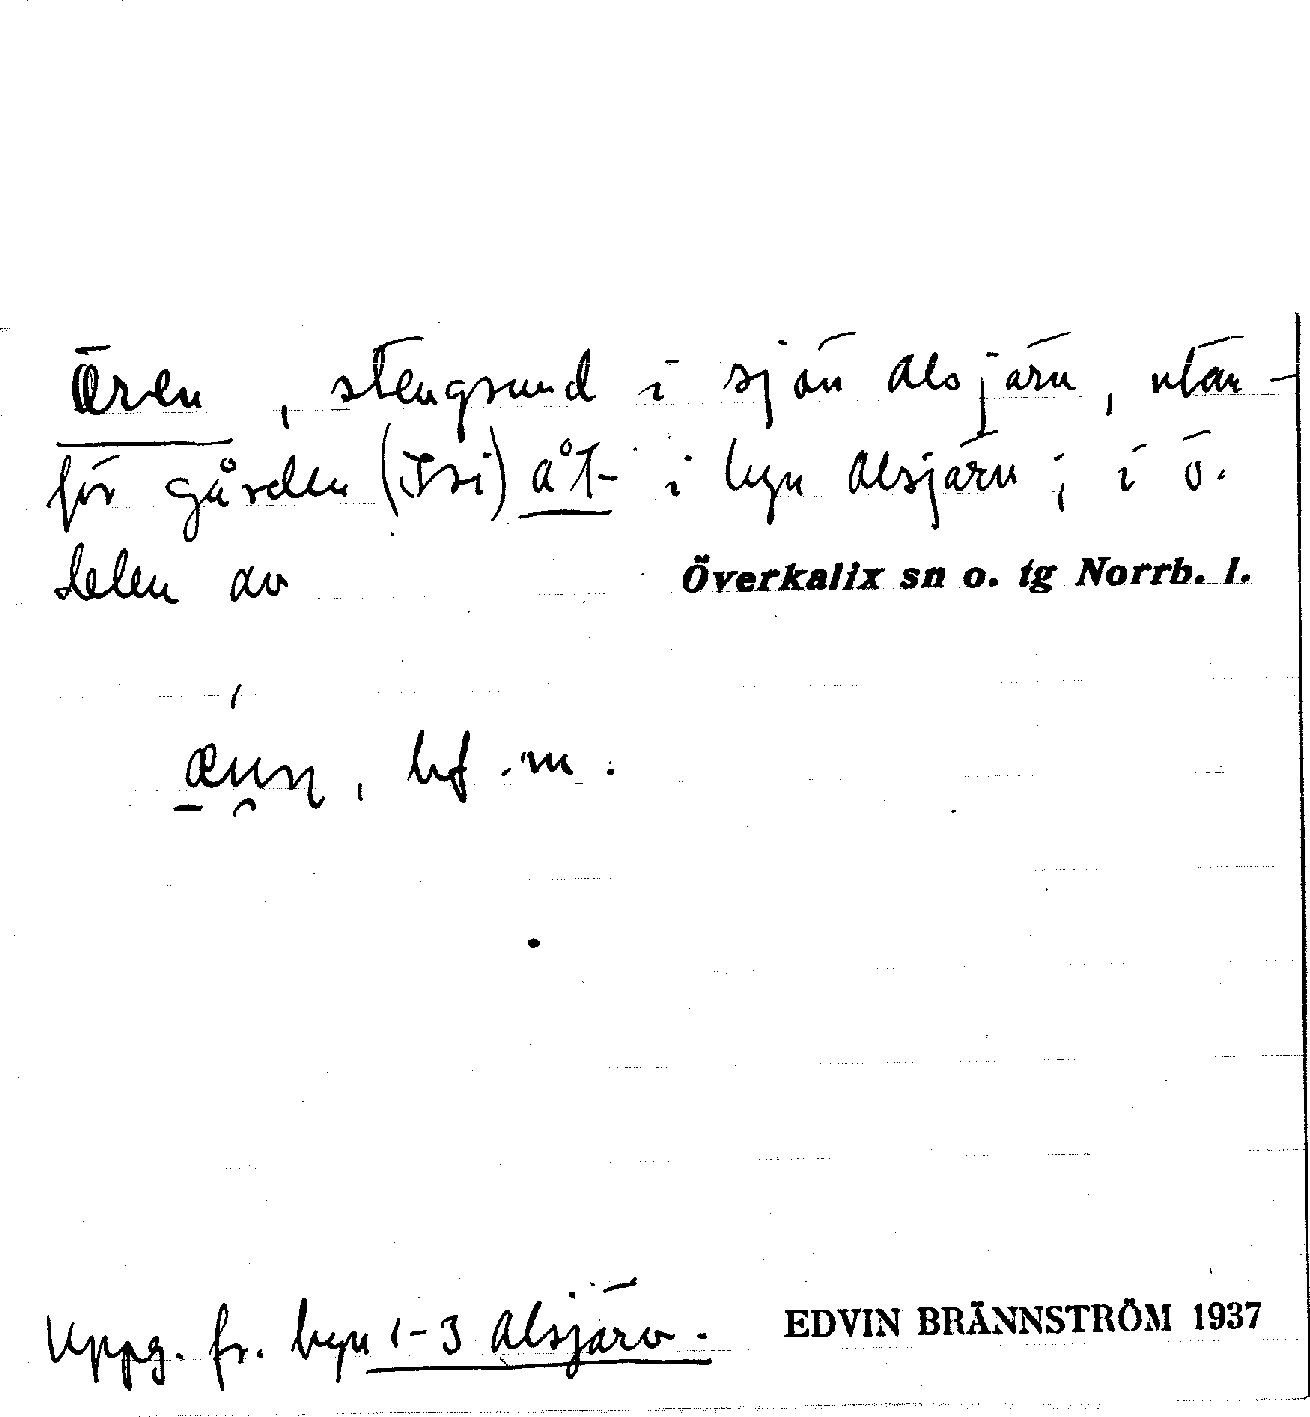 Ören, stengrund i sjön Alsjärv, utan-
för gården (Isi) i byn Alsjärv; i ö.
delen av Överkalix sn o. tg Norrb. l.
bf. m.
Uppg. fr. byn 1-3 Alsjärv.
EDVIN BRÄNNSTRÖM 1937